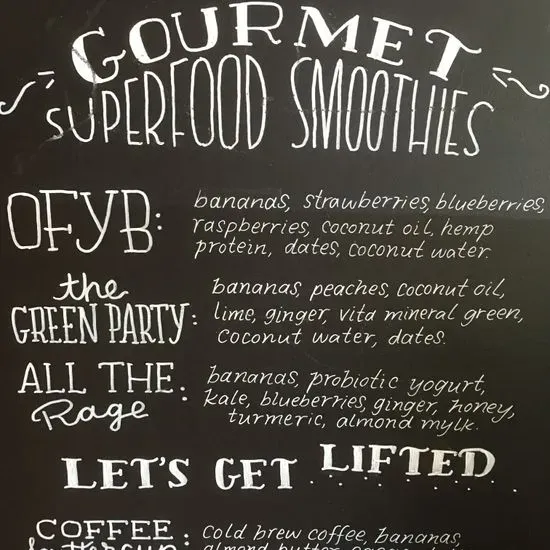 GOURMET
SUPERFOOD SMOOTHIES
OFYB: bananas, strawberries, blueberries,
raspberries, coconut oil, hemp
protein, dates, coconut water.
the
GREEN PARTY: bananas, peaches, coconut oil,
lime, ginger, vita mineral green,
coconut water, dates.
ALL THE
Rage: bananas, probiotic yogurt,
kale, blueberries, ginger, honey,
turmeric, almond mylk.
LET'S GET LIFTED
COFFEE
: cold brew coffee, bananas,
almond butter,